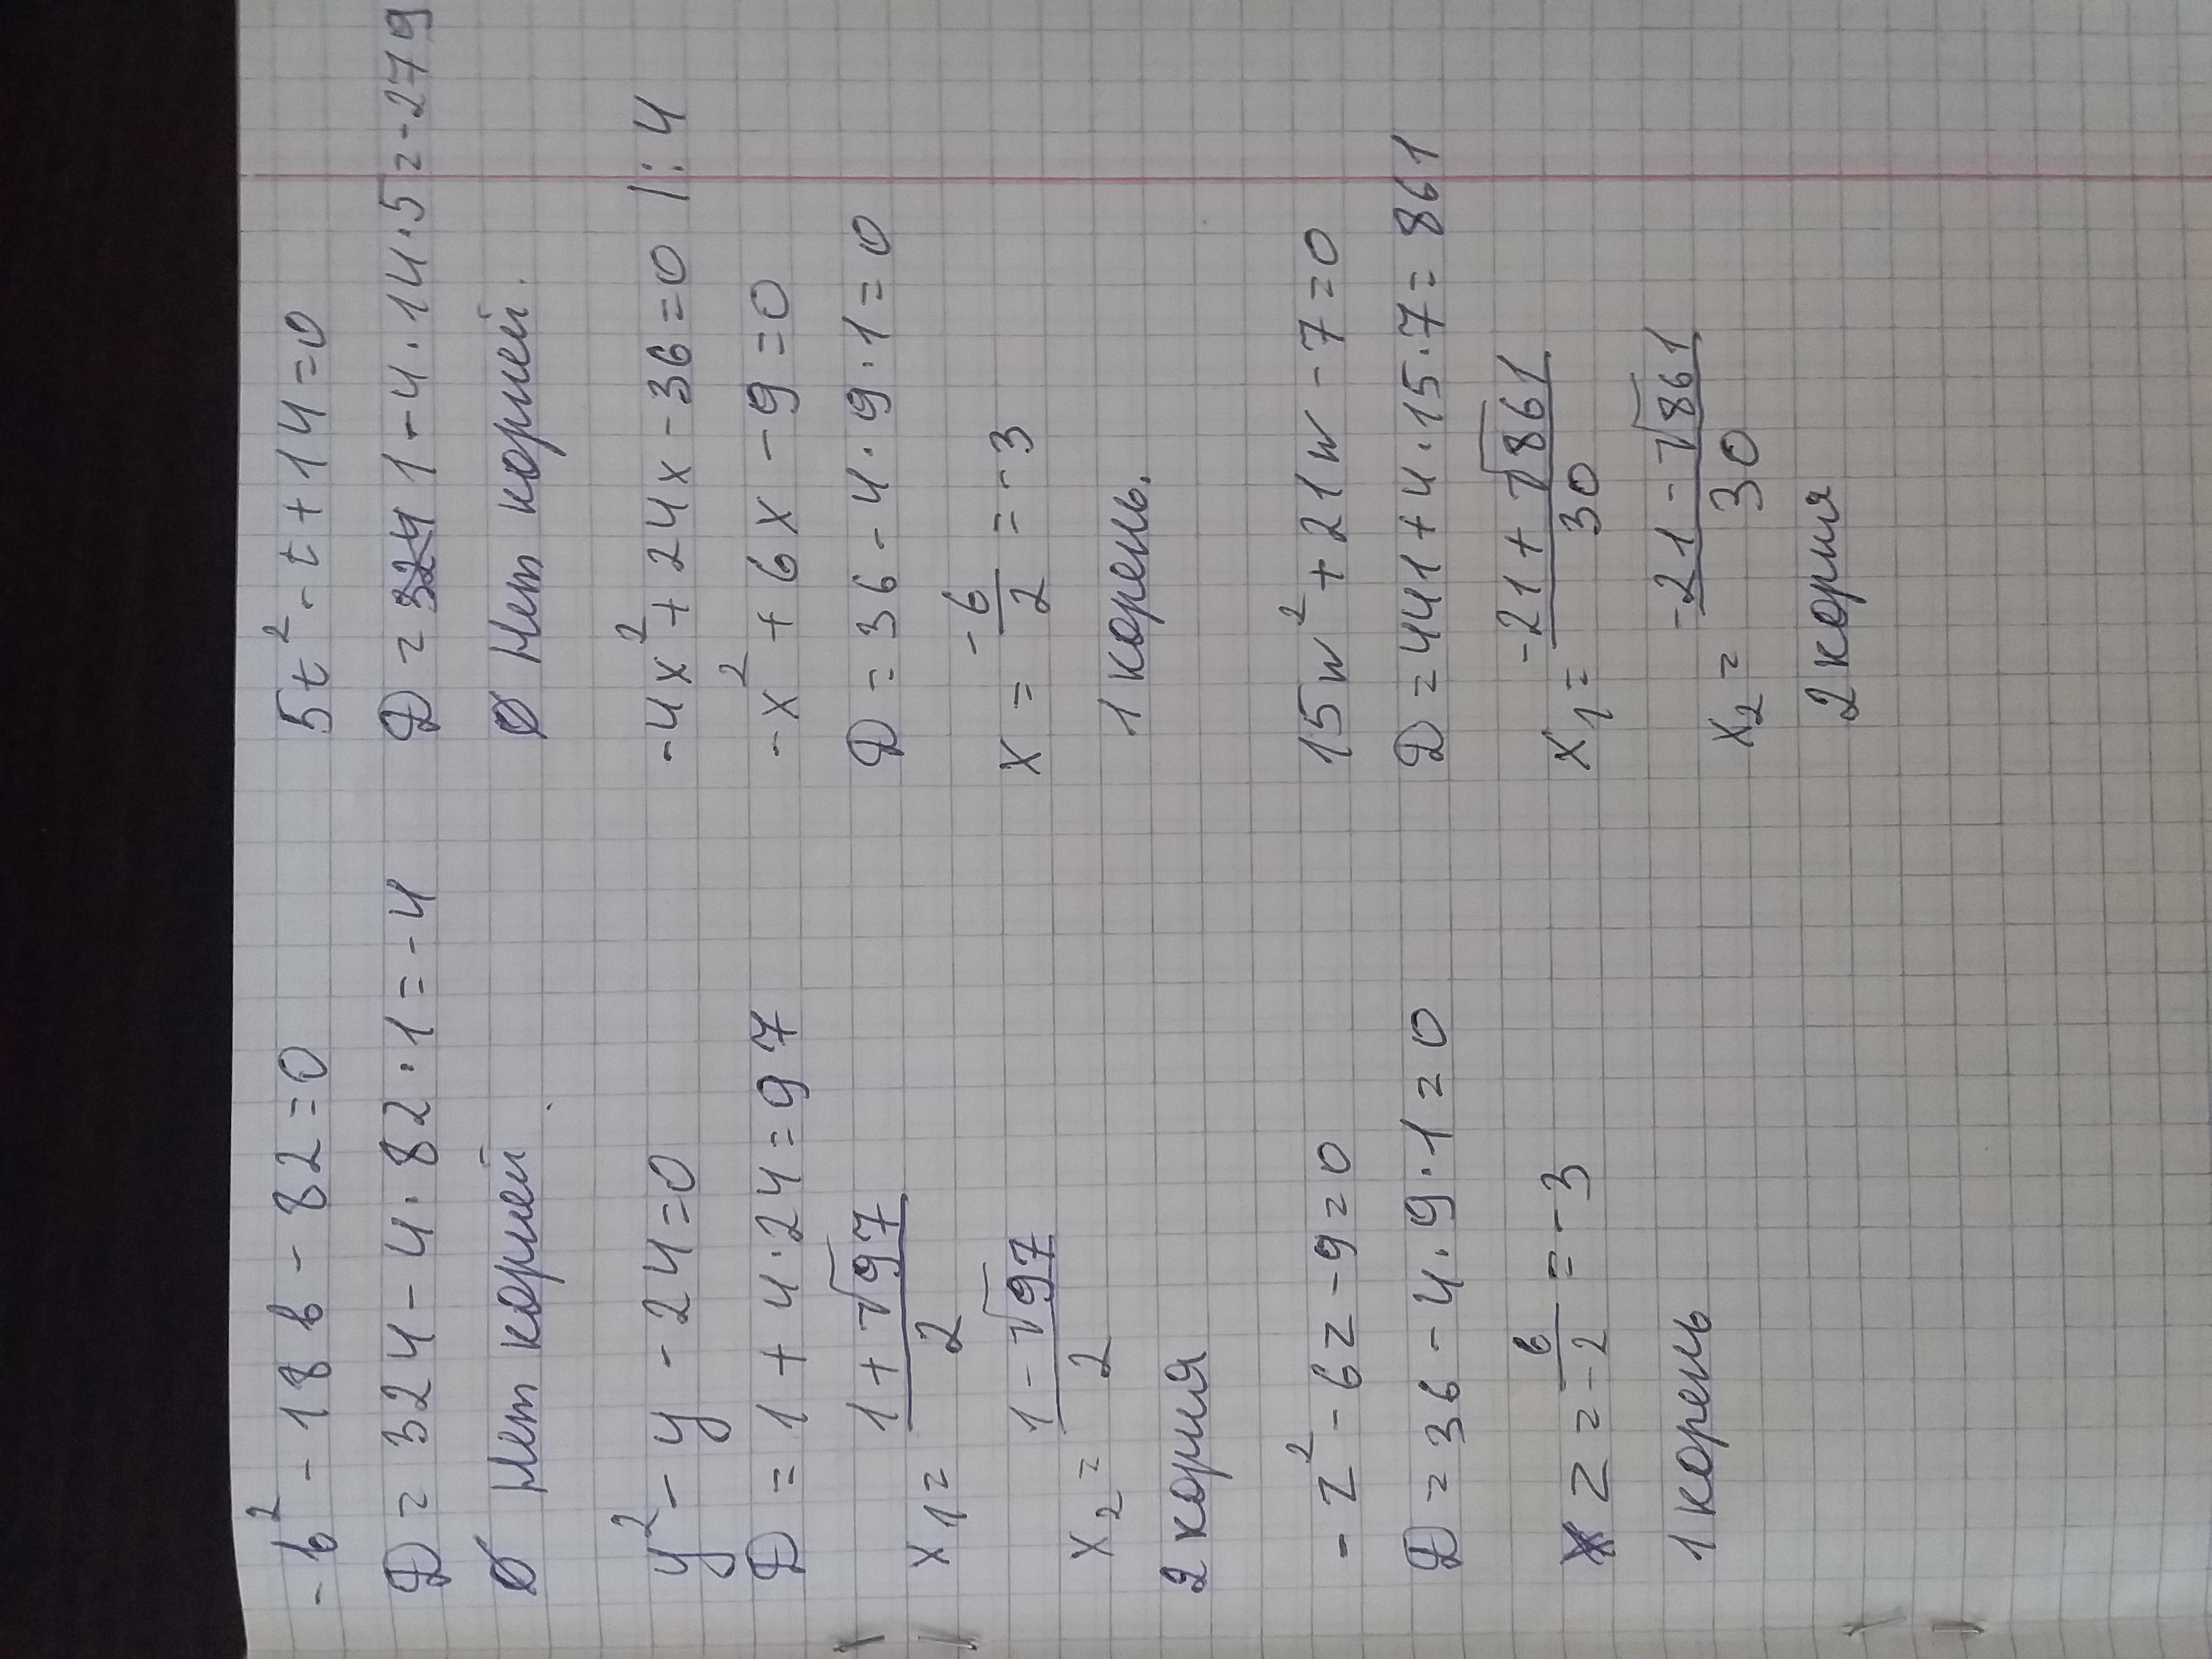 -b² - 18b - 82 = 0
D = 324 - 4·82·1 = -4
∅ Нет корней
y² - y - 24 = 0
D = 1 + 4·24 = 97
x₁ = (1 + √97)/2
x₂ = (1 - √97)/2
2 корня
-z² - 6z - 9 = 0
D = 36 - 4·9·1 = 0
z = -6/2 = -3
1 корень
5t² - t + 14 = 0
D = 1 - 4·14·5 = -279
∅ Нет корней.
-4x² + 24x - 36 = 0 |:4
-x² + 6x - 9 = 0
D = 36 - 4·9·1 = 0
x = -6/2 = -3
1 корень.
15w² + 21w - 7 = 0
D = 441 + 4·15·7 = 861
x₁ = (-21 + √861)/30
x₂ = (-21 - √861)/30
2 корня